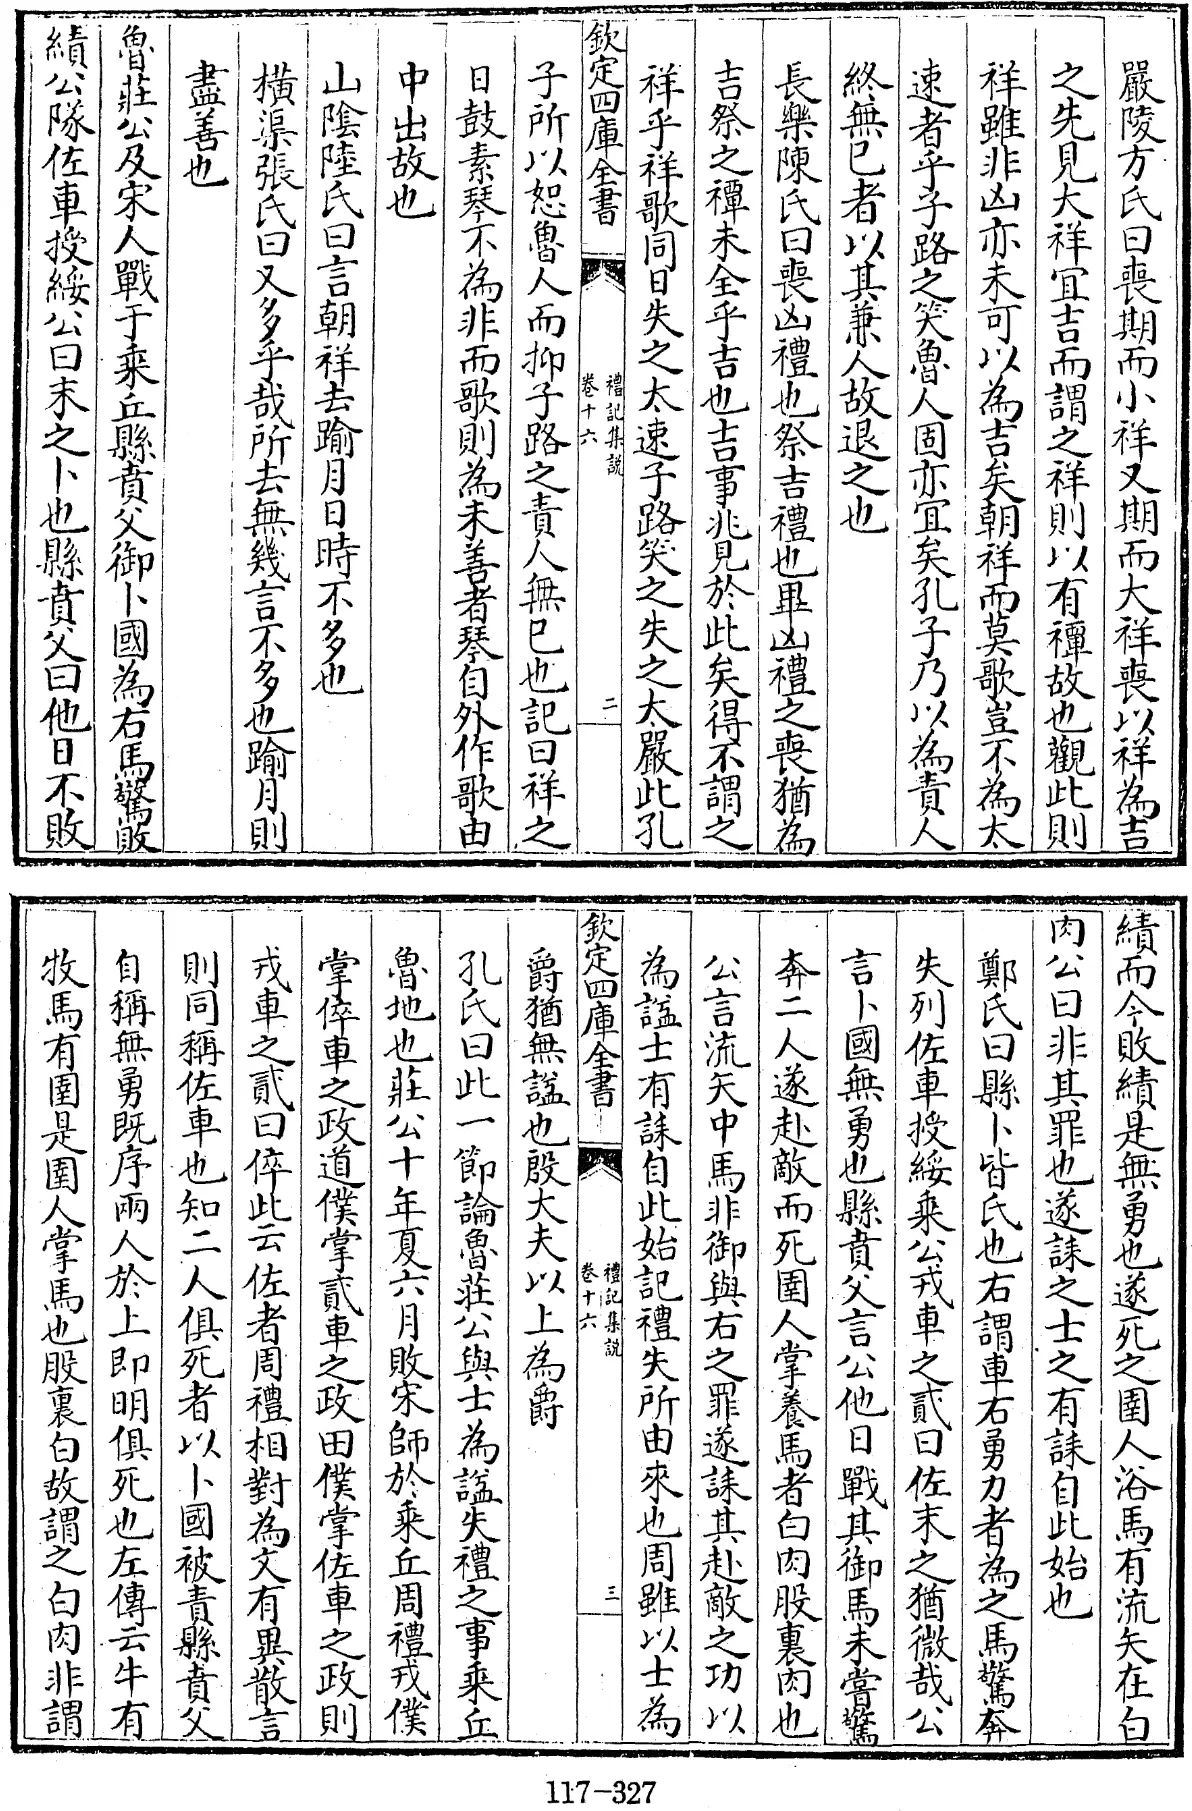 嚴陵方氏曰喪期而小祥又期而大祥喪以祥為吉
之先見大祥宜吉而謂之祥則以有禫故也觀此則
祥雖非凶亦未可以為吉矣朝祥而莫歌豈不為太
速者乎子路之笑魯人固亦宜矣孔子乃以為責人
終無已者以其兼人故退之也
長樂陳氏曰喪凶禮也祭吉禮也畢凶禮之喪猶為
吉祭之禫未全乎吉也吉事兆見於此矣得不謂之
祥乎祥歌同日失之太速子路笑之失之太嚴此孔
欽定四庫全書
禮記集說
卷十六
二
子所以恕魯人而抑子路之責人無已也記曰祥之
日鼓素琴不為非而歌則為未善者琴自外作歌由
中出故也
山陰陸氏曰言朝祥去踰月日時不多也
橫渠張氏曰又多乎哉所去無幾言不多也踰月則
盡善也
魯莊公及宋人戰于乘丘縣賁父御卜國為右馬驚敗
績公隊佐車授綏公曰末之卜也縣賁父曰他日不敗
績而今敗績是無勇也遂死之圉人浴馬有流矢在白
肉公曰非其罪也遂誄之士之有誄自此始也
鄭氏曰縣卜皆氏也右謂車右勇力者為之馬驚奔
失列佐車授綏乘公戎車之貳曰佐末之猶微哉公
言卜國無勇也縣賁父言公他日戰其御馬未嘗驚
奔二人遂赴敵而死圉人掌養馬者白肉股裏肉也
公言流矢中馬非御與右之罪遂誄其赴敵之功以
為諡士有誄自此始記禮失所由來也周雖以士為
欽定四庫全書
禮記集說
卷十六
三
爵猶無諡也殷大夫以上為爵
孔氏曰此一節論魯莊公與士為諡失禮之事乘丘
魯地也莊公十年夏六月敗宋師於乘丘周禮戎僕
掌倅車之政道僕掌貳車之政田僕掌佐車之政則
戎車之貳曰倅此云佐者周禮相對為文有異散言
則同稱佐車也知二人俱死者以卜國被責縣賁父
自稱無勇既序兩人於上即明俱死也左傳云牛有
牧馬有圉是圉人掌馬也股裏白故謂之白肉非謂
117-327